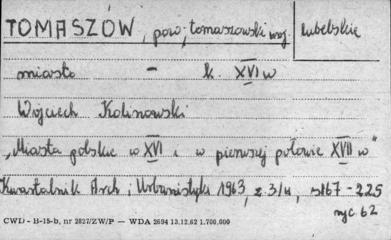 TOMASZÓW, pow. tomaszowski woj. lubelskie
miasto - k. XVI w
Wojciech Kalinowski
"Miasta polskie w XVI i w pierwszej połowie XVII w"
Kwartalnik Arch i Urbanistyki 1963, z. 3/4, s 167 - 225
ryc. 62
CWD - B-15-b, nr 2827/ZW/P — WDA 2694 13.12.62 1.700.000